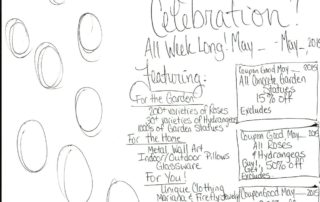 Celebration!
All Week Long! May __ - May __, 2015
Featuring:
For the Garden
200+ varieties of Roses
30+ varieties of Hydrangeas
1000s of Garden Statues
For the Home
Metal Wall Art
Indoor/Outdoor Pillows
Glassware
For You!
Unique Clothing
Mariana & Firefly Jewelry
Coupon Good May __ 2015
All Concrete Garden
Statues
15% off
Excludes
Coupon Good May __ 2015
All Roses
& Hydrangeas
Buy 1, Get 1 50% off
Excludes
Coupon Good May __ 2015